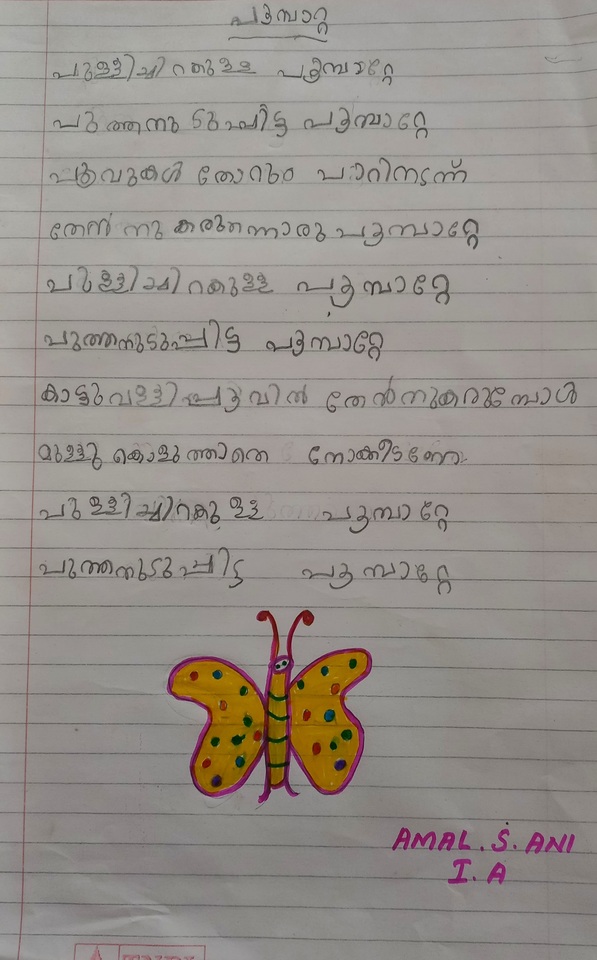 പൂമ്പാറ്റ
പുള്ളിച്ചിറകുള്ള പൂമ്പാറ്റേ
പുത്തനുടുപ്പിട്ട പൂമ്പാറ്റേ
പൂവുകൾ തോറും പാറിനടന്ന്
തേൻ നുകരുന്നൊരു പൂമ്പാറ്റേ
പുള്ളിച്ചിറകുള്ള പൂമ്പാറ്റേ
പുത്തനുടുപ്പിട്ട പൂമ്പാറ്റേ
കാട്ടുവള്ളിപ്പൂവിൽ തേൻനുകരുമ്പോൾ
മുള്ളു കൊളുത്താതെ നോക്കീടണേ
പുള്ളിച്ചിറകുള്ള പൂമ്പാറ്റേ
പുത്തനുടുപ്പിട്ട പൂമ്പാറ്റേ
AMAL. S. ANI
I. A